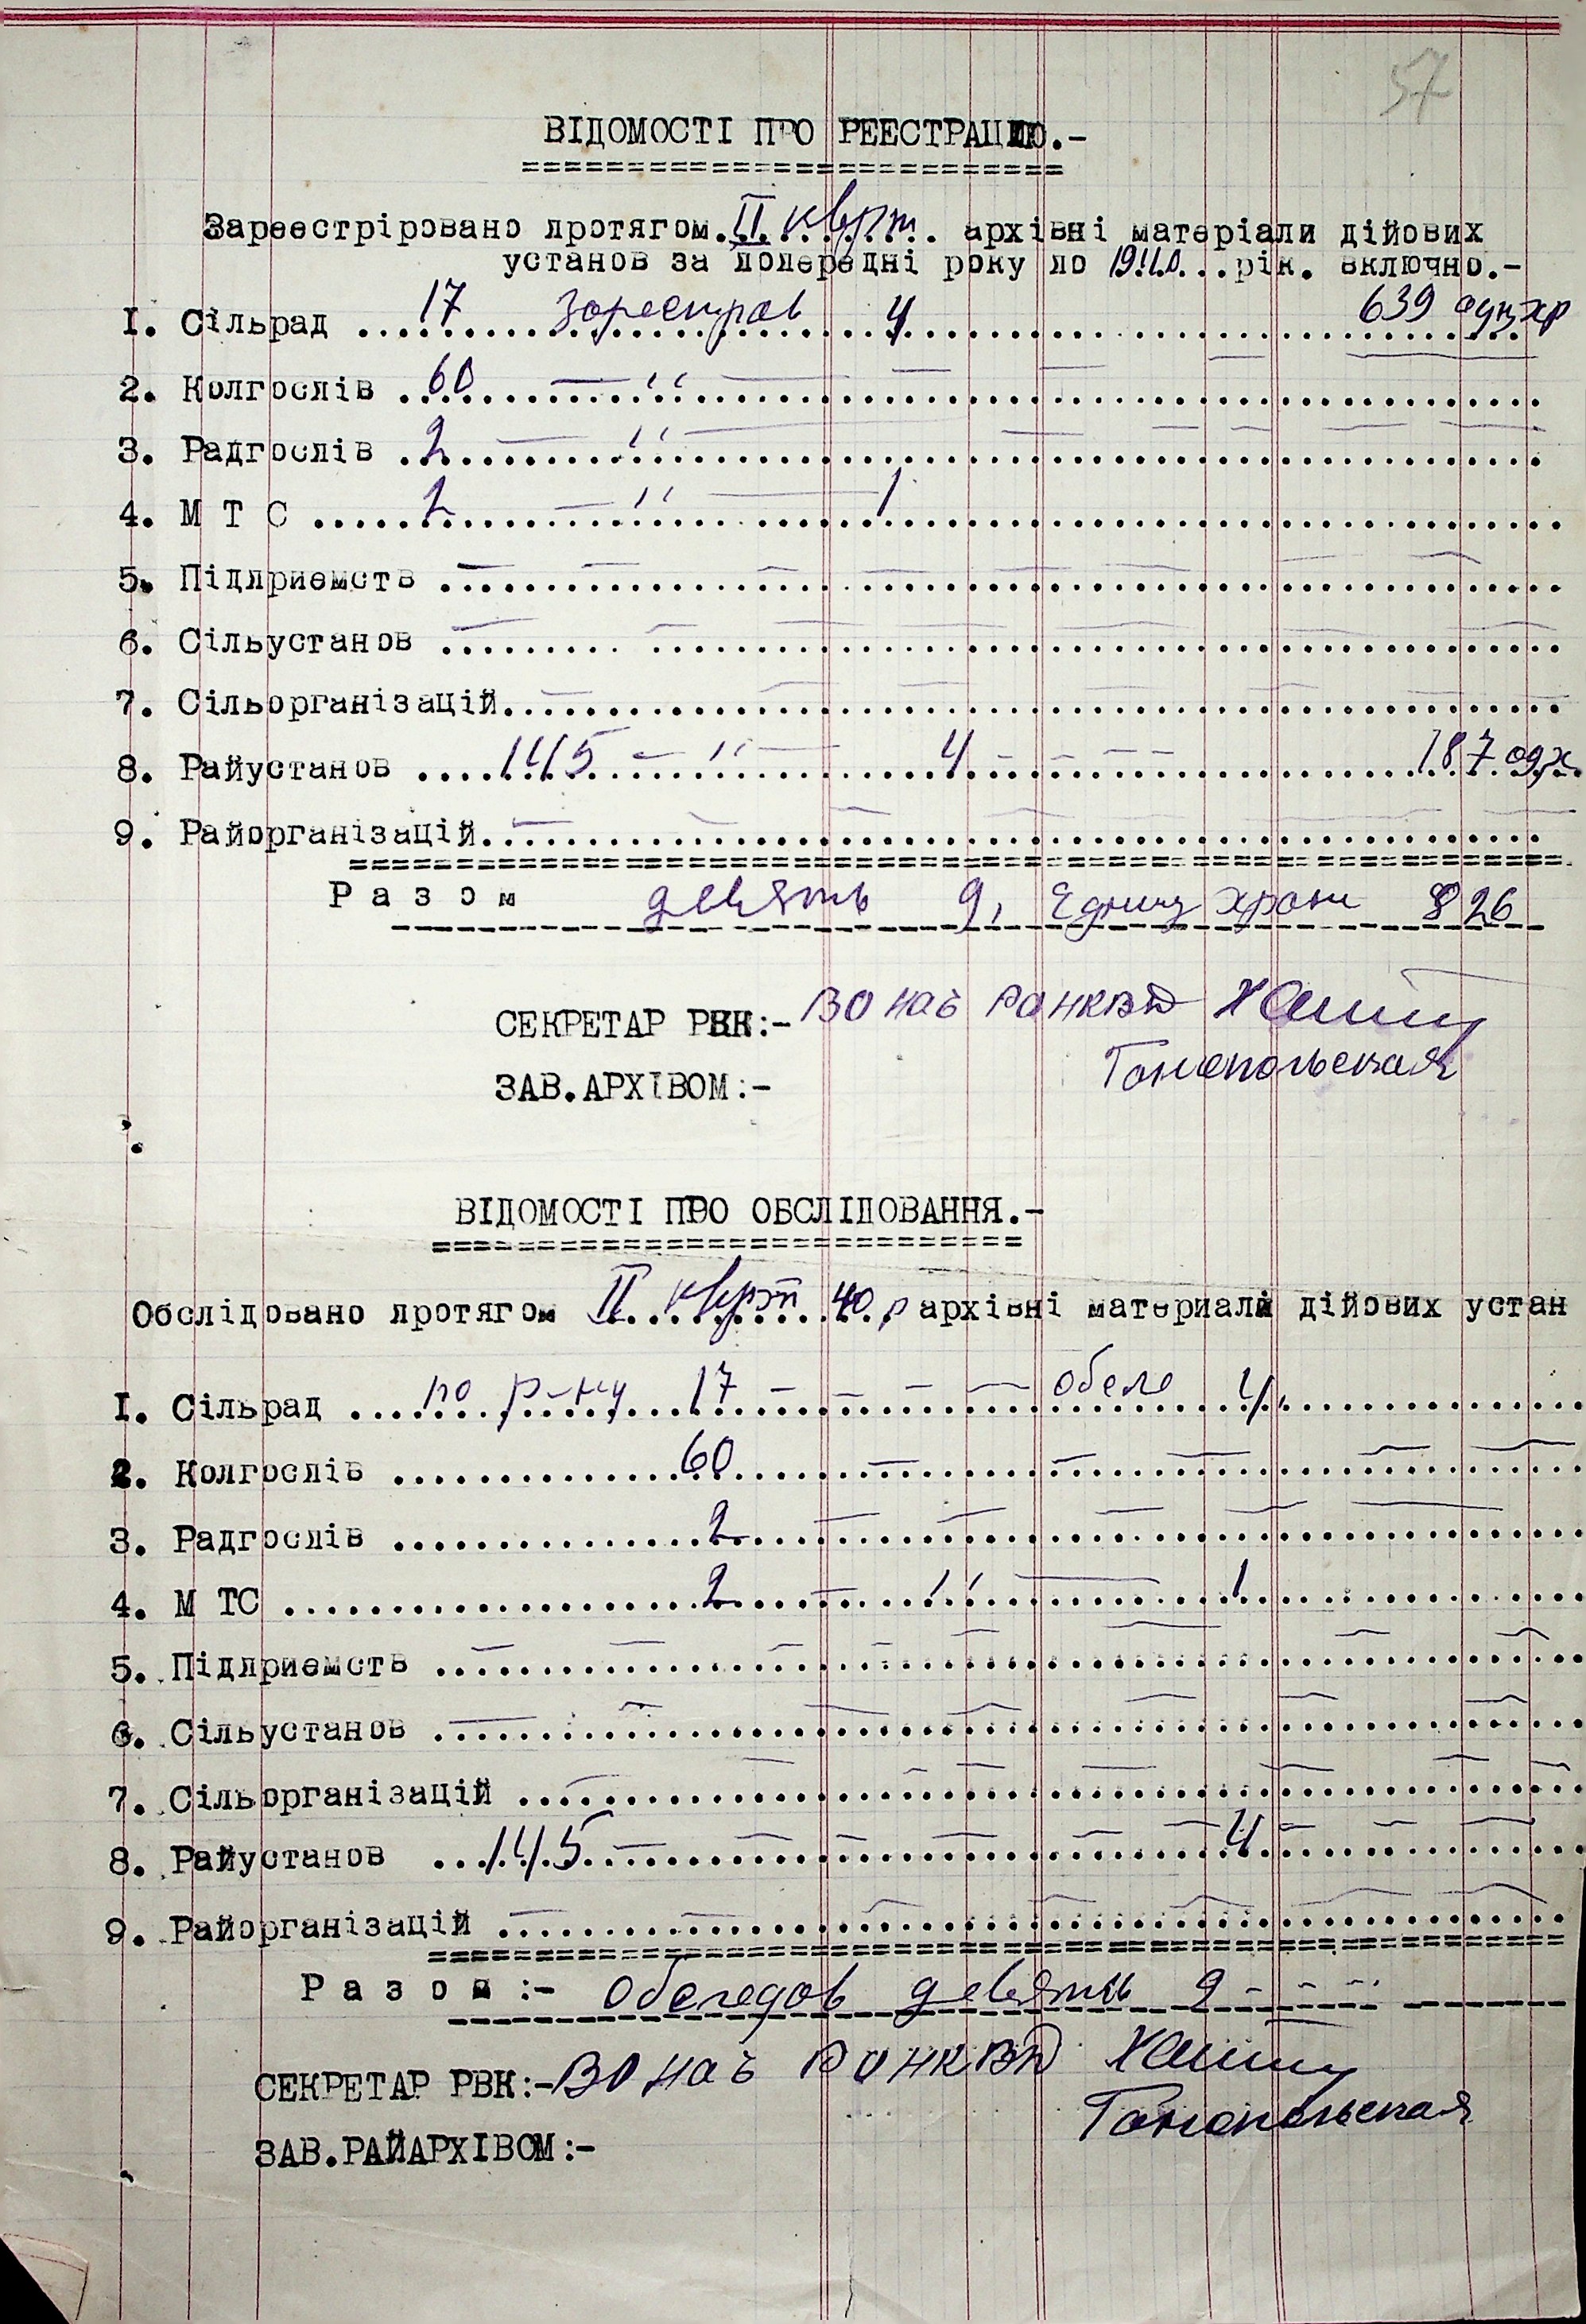 57
ВІДОМОСТІ ПРО РЕЕСТРАЦІЮ.-
Зареестріровано протягом II кврт. архівні матеріали дійових
установ за попередні року по 1940 рік. включно.-
І. Сільрад 17 зареестров 4 639 одн хр
2. Колгоспів 60 — '' —
3. Радгоспів 2 — '' —
4. М Т С 2 — '' — 1
5. Підприемств
6. Сільустанов
7. Сільорганізацій
8. Райустанов 145 — '' — 4 187 од.х.
9. Райорганізацій
Разом девять 9, Едниц хран 826
СЕКРЕТАР РВК:- ВО нач РОНКВД
Тонопольская
ЗАВ.АРХІВОМ:-
ВІДОМОСТІ ПРО ОБСЛІДОВАННЯ.-
Обслідовано протягом II кврт 40 р архівні материали дійових устан
І. Сільрад по р-ну 17 - - - - обсле 4.
2. Колгоспів 60
3. Радгоспів 2
4. М ТС 2 — '' — 1
5. Підприемств
6. Сільустанов
7. Сільорганізацій
8. Райустанов 145 — 4
9. Райорганізацій
Разом:- Обследов девять 9 - - - -
СЕКРЕТАР РВК:- ВО нач РОНКВД
Тонопольская
ЗАВ.РАЙАРХІВОМ:-